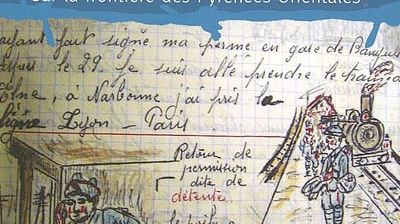 Sur la frontière des Pyrénées Orientales
ayant fait signé ma perme en gare de Banyuls
le 29. je suis allé prendre le train à
Elne, à Narbonne j'ai pris la
ligne Lyon - Paris.
Retour de
permission
dite de
détente